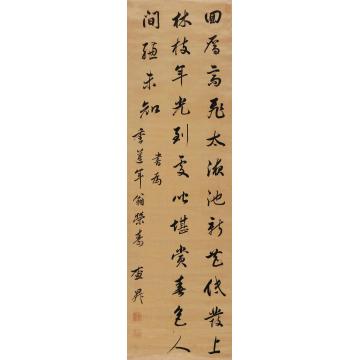 回鴈高飛太液池新花低發上
林枝年光到處皆堪賞春色人
間總未知
書為
季年翁榮壽 查昇